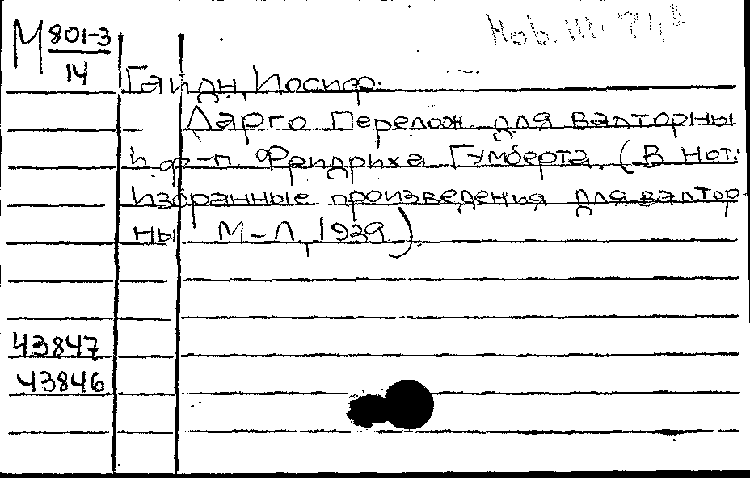 М 801-3
14
Нов. III-74
Гайдн, Иосиф.
Ларго. Перелож. для валторны
и ф-п. Фридриха Гумберта. (В нот:
Избранные произведения для валтор-
ны М-Л, 1939)
43847
43846